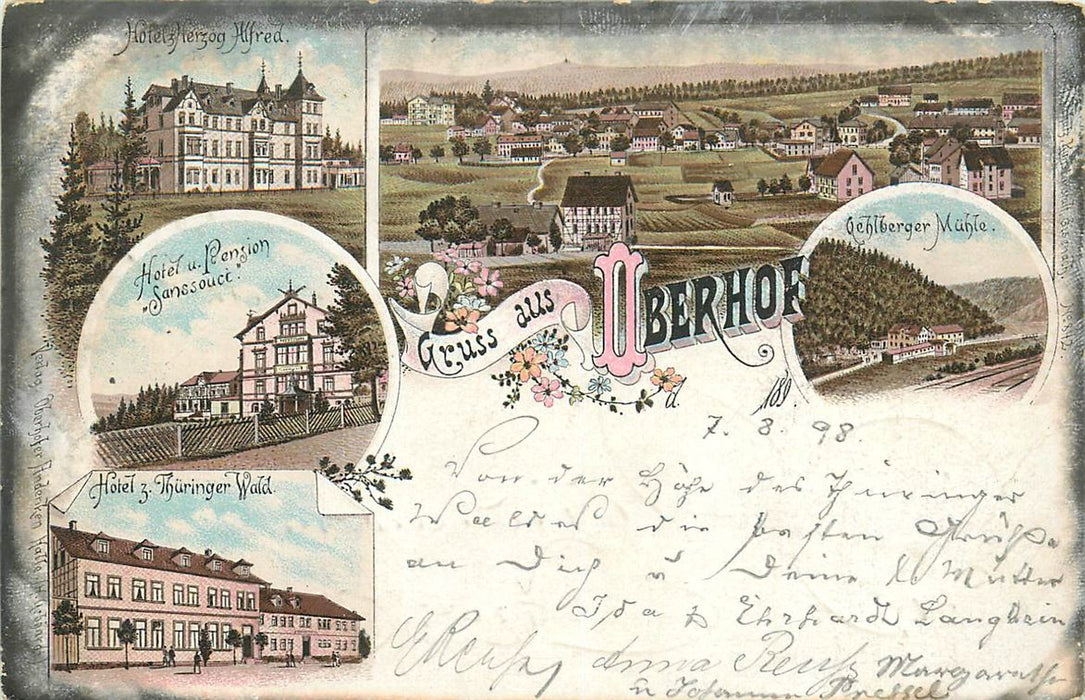 Hotel z. Herzog Alfred.
Hotel u. Pension
"Sanssouci"
Hotel z. Thüringer Wald.
Gehlberger Mühle.
Gruss aus OBERHOF
d. 189
7. 8. 98.
Von der Höhe des Thüringer
Waldes die besten Grüße
an Dich u Deine l. Mutter
Ida & Ehrhardt Langbein
Anna Reuß Margarethe
u Johanna